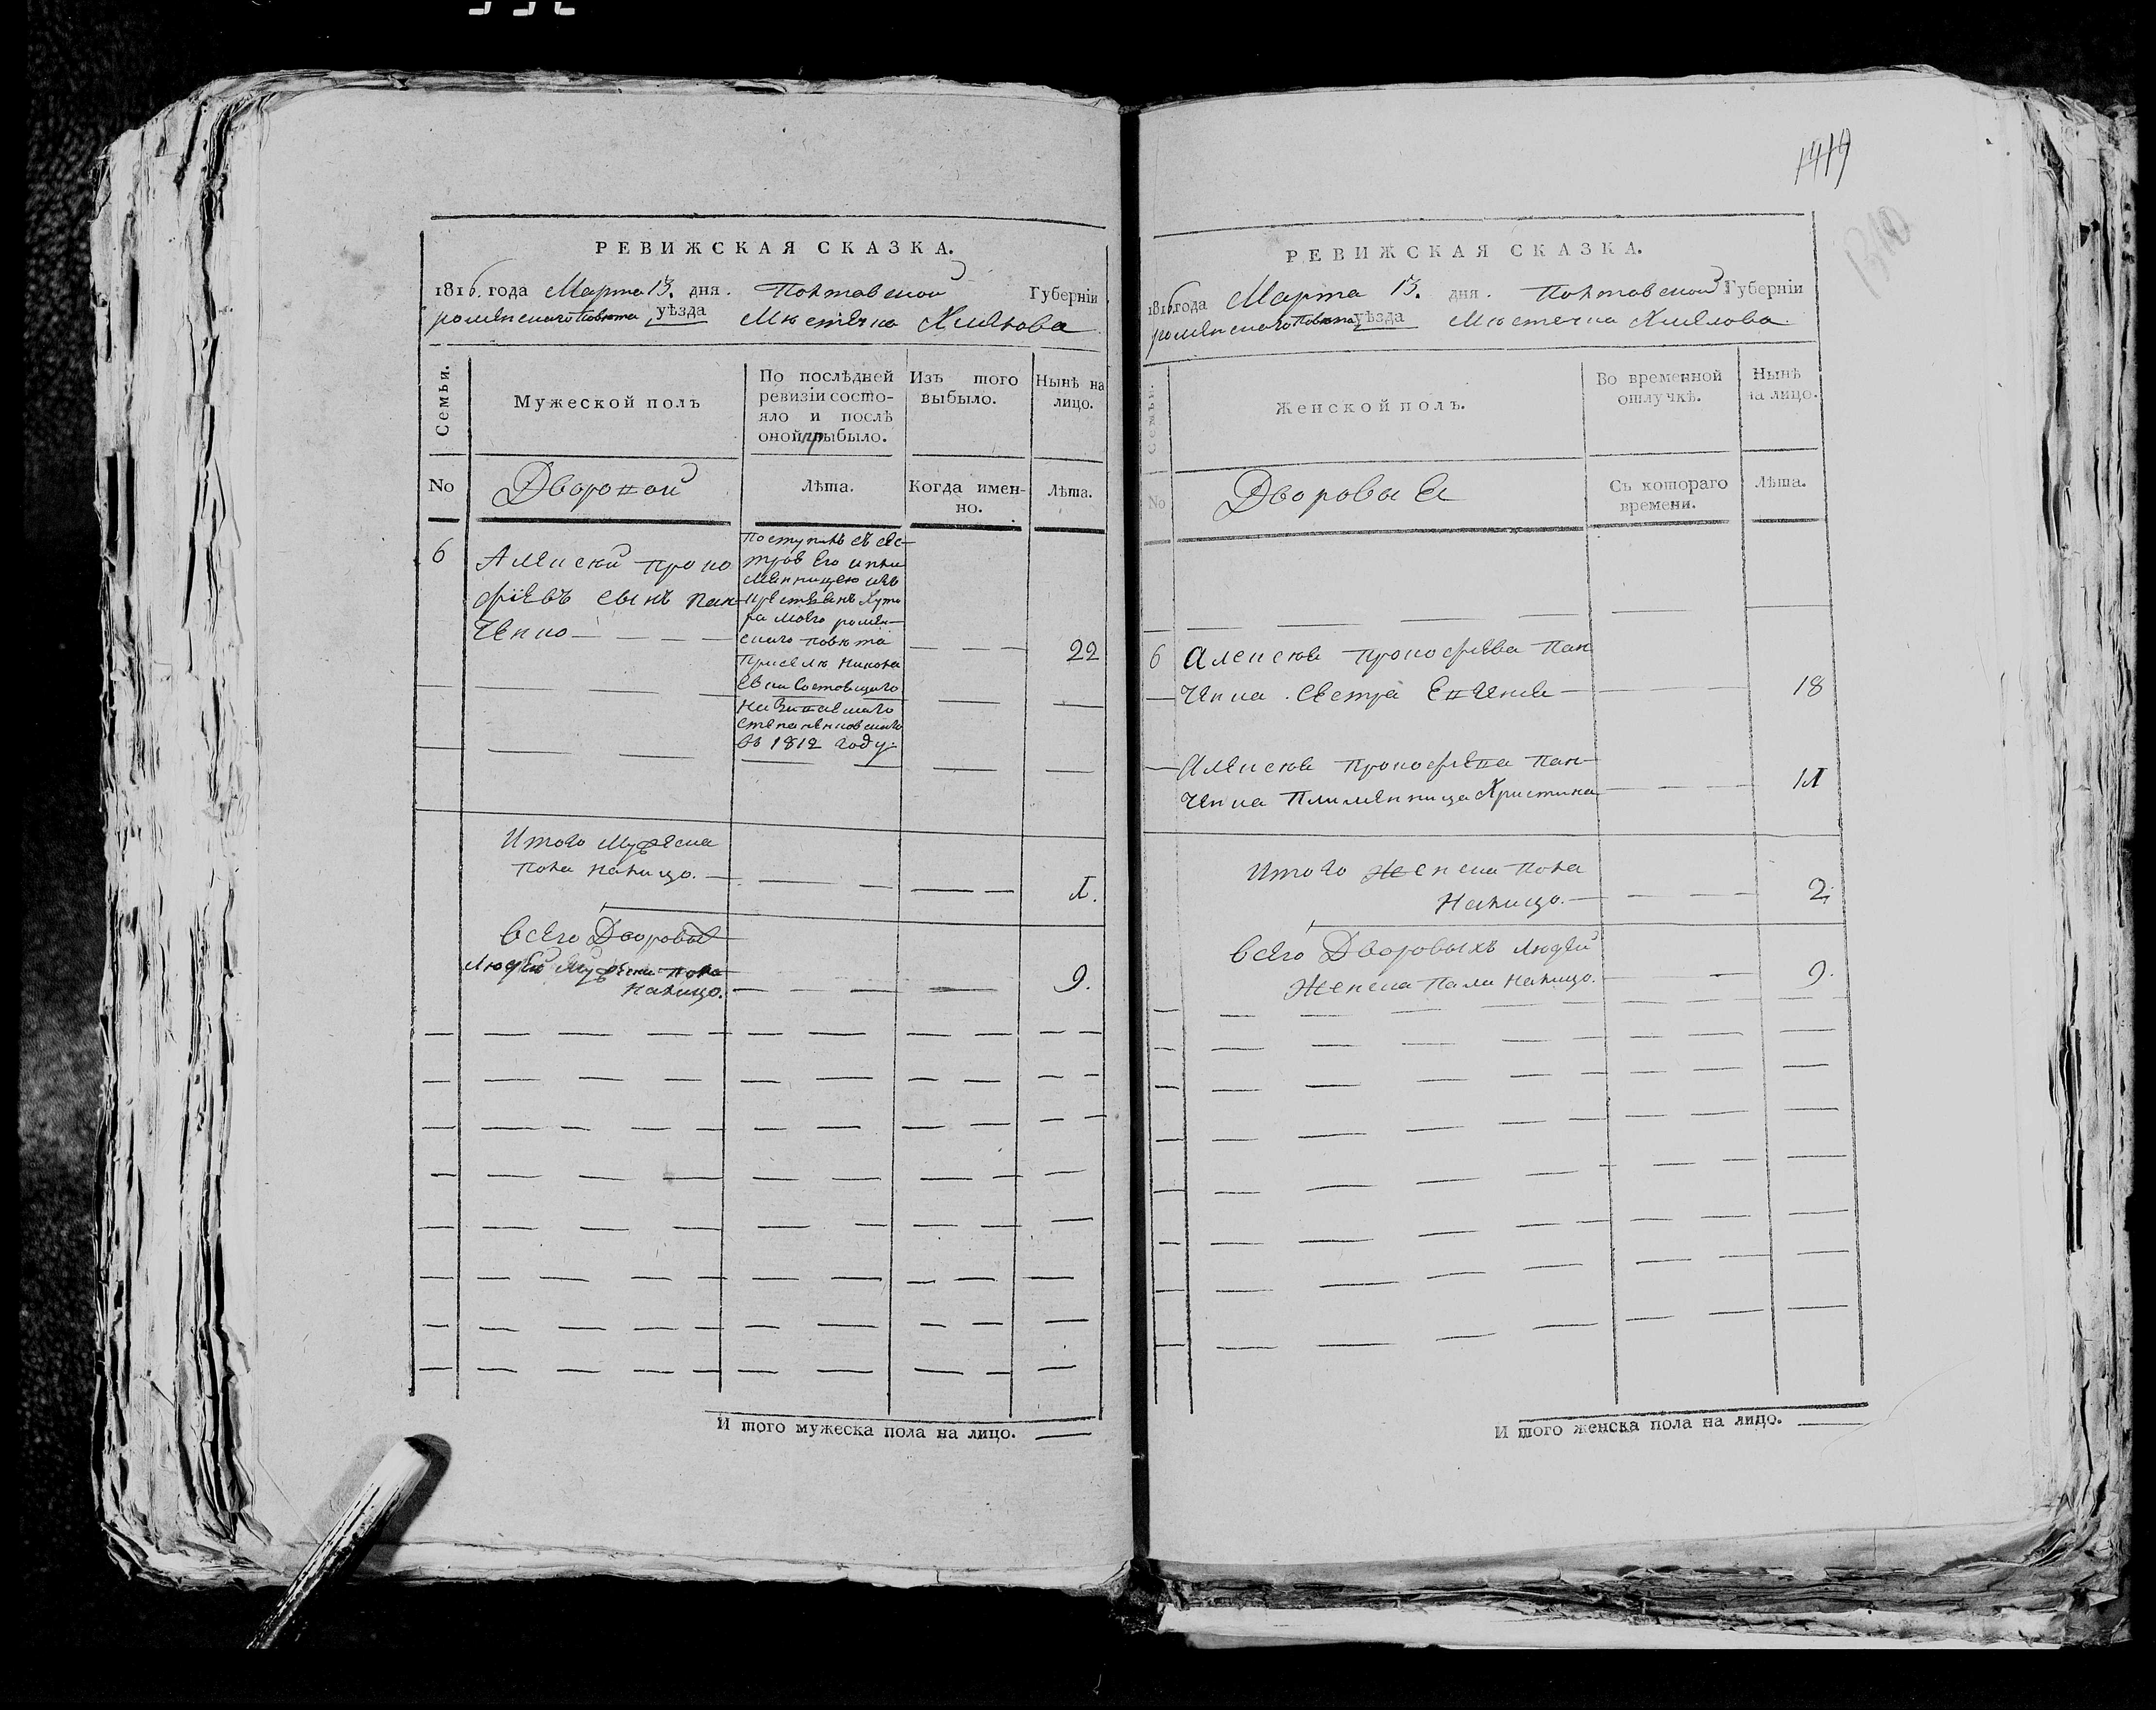 РЕВИЖСКАЯ СКАЗКА.
1816. года Марта 13. дня. Полтавской Губерніи
роменскаго повета уѣзда Местечка Хмелова
Семьи.
Мужеской полъ
По послѣдней
ревизіи состо-
яло и послѣ
оной прибыло.
Изъ того
выбыло.
Нынѣ на
лицо.
No
Лѣта.
Когда имен-
но.
Лѣта.
6
Алексей проко
фіевъ сынъ пан
ченко
Поступилъ съ сес-
трою его и пле
менницею изъ
крестьянъ хуто
ра моего ромен-
скаго повета
въ 1812 году.
22
Итого мужеска
пола налицо.
1.
всего Дворовых
людей мужеска пола
налицо.
9.
И того мужеска пола на лицо.
1419
РЕВИЖСКАЯ СКАЗКА.
1816 года Марта 13. дня. Полтавской Губерніи
роменскаго повета уѣзда Местечка Хмелова.
Семьи.
Женской полъ.
Во временной
отлучкѣ.
Нынѣ
на лицо.
No
Дворовые
Съ котораго
времени.
Лѣта.
6
Алексея прокофьева пан
ченка сестра
18
Алексея прокофьева пан-
ченка племенница Христина
11
Итого женска пола
налицо.
2.
всего Дворовыхъ людей
женска пола налицо.
9.
И того женска пола на лицо.